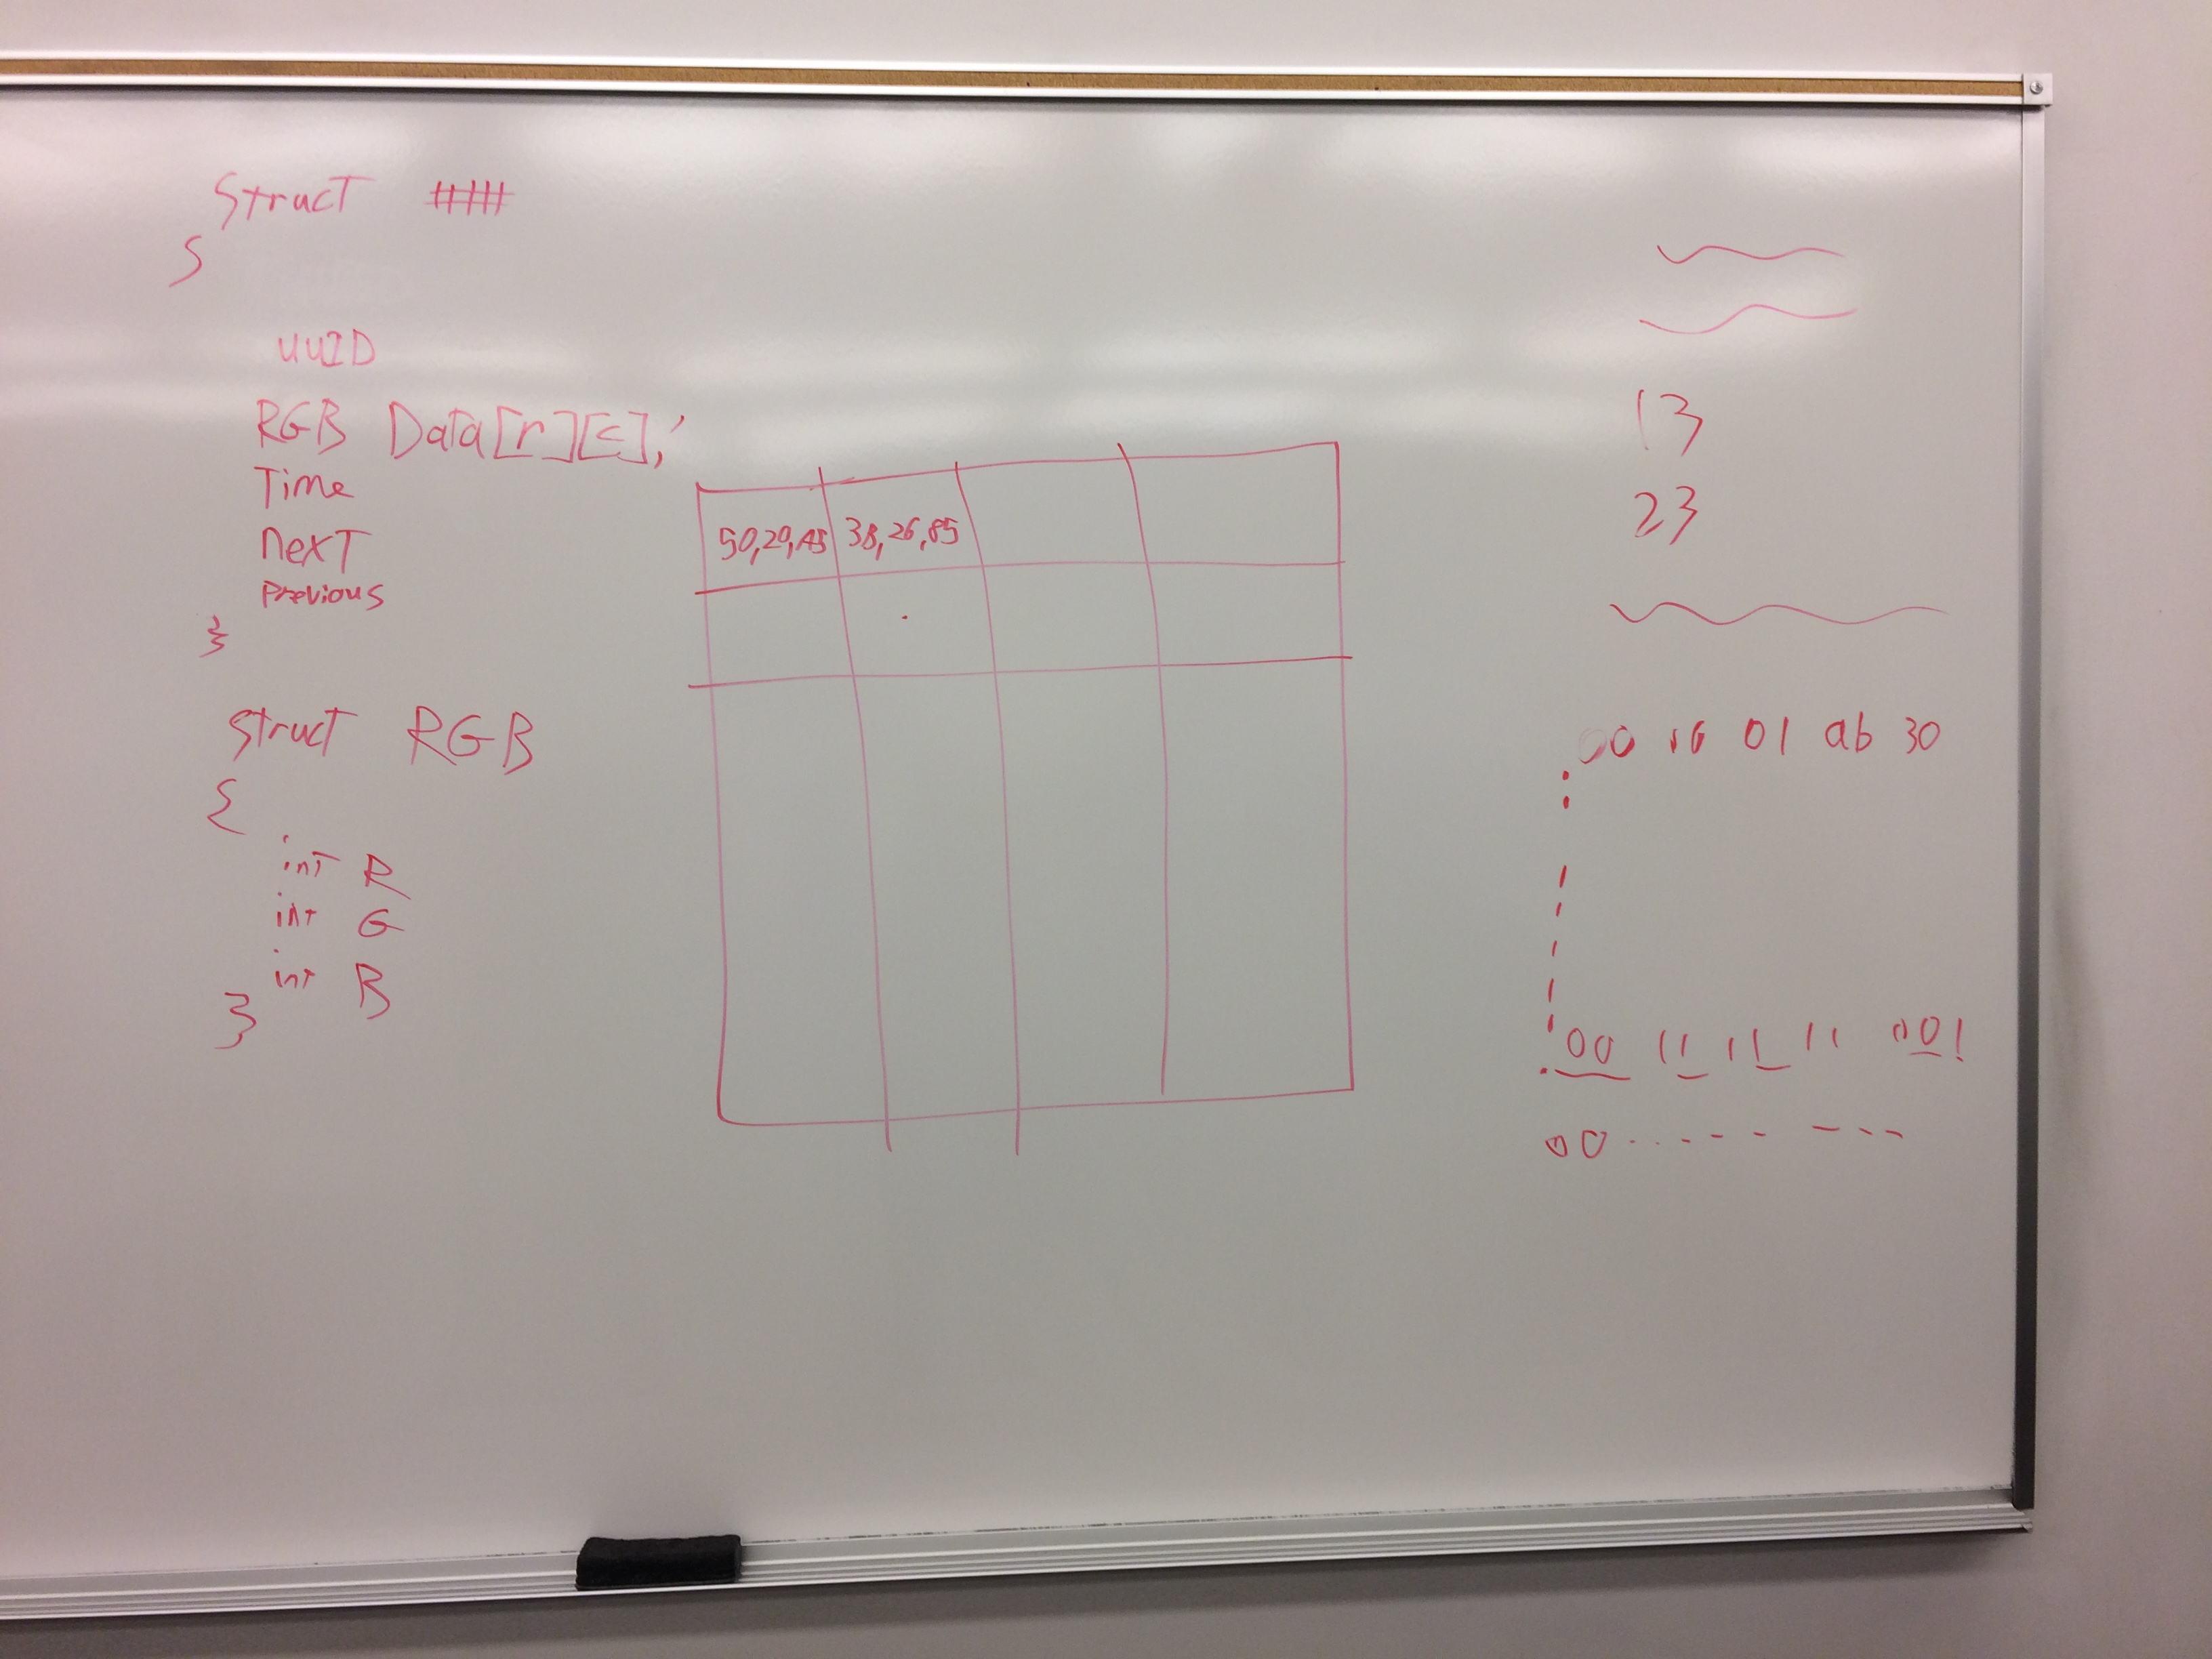 Struct ####
{
UUID
RGB Data[r][c];
Time
next
Previous
}
Struct RGB
{
int R
int G
int B
}
50,29,45 38,26,85
13
23
00 16 01 ab 30
00 11 11 11 001
00